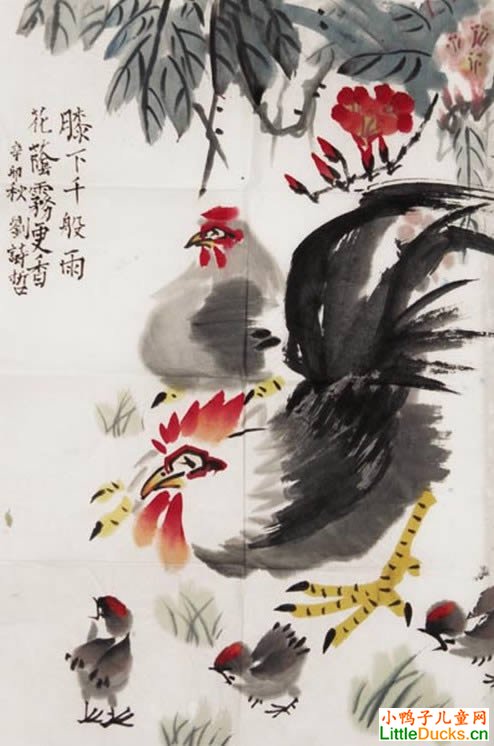 膝下千般雨
花蔭霧更香
辛卯秋 劉詩哲
小鸭子儿童网
LittleDucks.cn